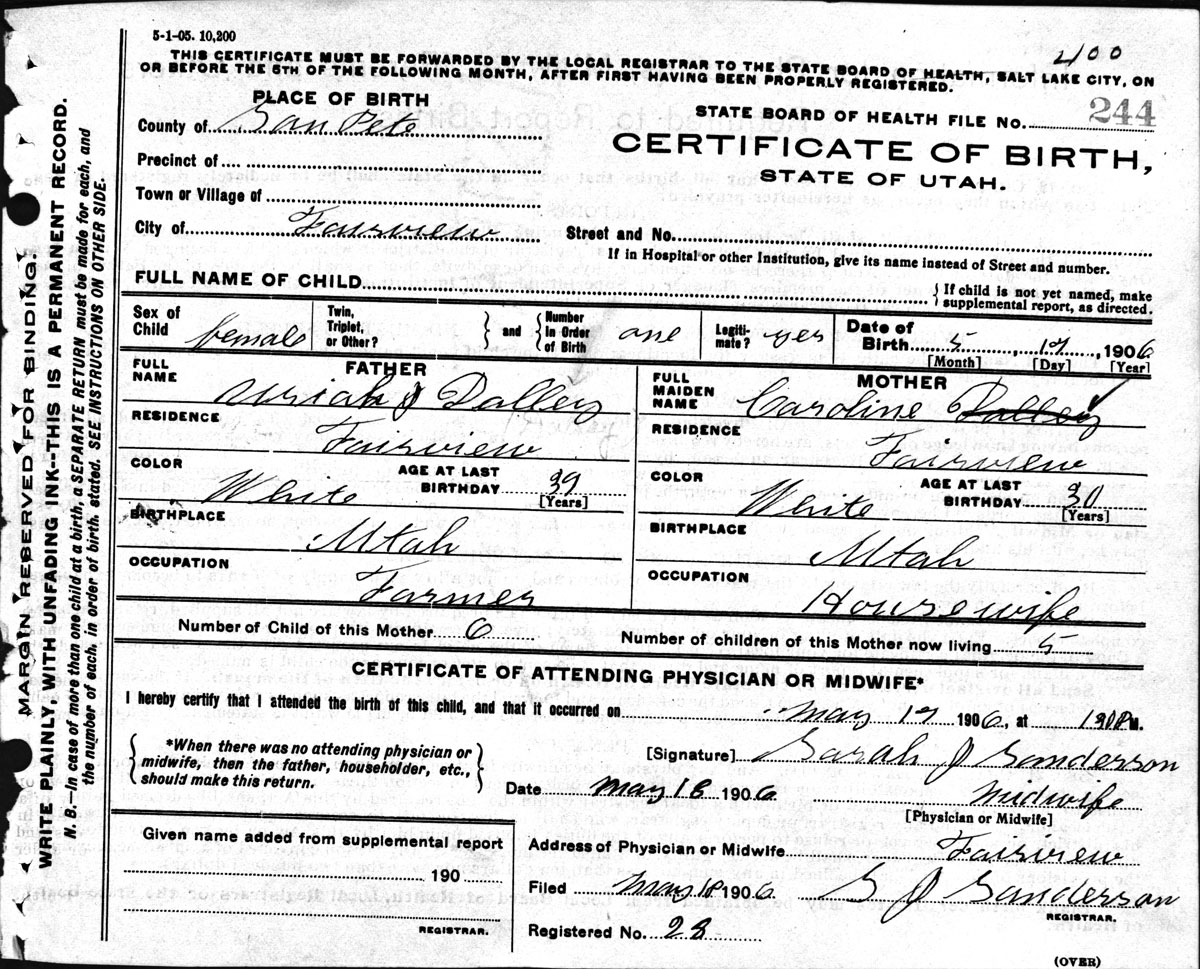 5-1-05. 10,200
400
THIS CERTIFICATE MUST BE FORWARDED BY THE LOCAL REGISTRAR TO THE STATE BOARD OF HEALTH, SALT LAKE CITY, ON
OR BEFORE THE 5TH OF THE FOLLOWING MONTH, AFTER FIRST HAVING BEEN PROPERLY REGISTERED.
PLACE OF BIRTH
STATE BOARD OF HEALTH FILE NO. 244
County of San Pete
CERTIFICATE OF BIRTH,
STATE OF UTAH.
Precinct of
Town or Village of
City of Fairview
Street and No.
If in Hospital or other Institution, give its name instead of Street and number.
FULL NAME OF CHILD
} If child is not yet named, make
supplemental report, as directed.
Sex of Child female
Twin, Triplet, or Other? } and { Number In Order of Birth one
Legiti-mate? yes
Date of Birth 5, 17, 1906
[Month] [Day] [Year]
FATHER
FULL NAME Uriah J Dalley
RESIDENCE Fairview
COLOR White
AGE AT LAST BIRTHDAY 39
[Years]
BIRTHPLACE Utah
OCCUPATION Farmer
MOTHER
FULL MAIDEN NAME Caroline Dalley
RESIDENCE Fairview
COLOR White
AGE AT LAST BIRTHDAY 30
[Years]
BIRTHPLACE Utah
OCCUPATION Housewife
Number of Child of this Mother 6
Number of children of this Mother now living 5
CERTIFICATE OF ATTENDING PHYSICIAN OR MIDWIFE*
I hereby certify that I attended the birth of this child, and that it occurred on May 17 1906, at M.
{ *When there was no attending physician or
midwife, then the father, householder, etc.,
should make this return. }
[Signature] Sarah J Sanderson
Date May 18 1906 Midwife
[Physician or Midwife]
Given name added from supplemental report
190
REGISTRAR.
Address of Physician or Midwife Fairview
Filed May 18 1906 S J Sanderson
REGISTRAR.
Registered No. 28
(OVER)
MARGIN RESERVED FOR BINDING.
WRITE PLAINLY, WITH UNFADING INK--THIS IS A PERMANENT RECORD.
N. B.—In case of more than one child at a birth, a SEPARATE RETURN must be made for each, and
the number of each, in order of birth, stated. SEE INSTRUCTIONS ON OTHER SIDE.